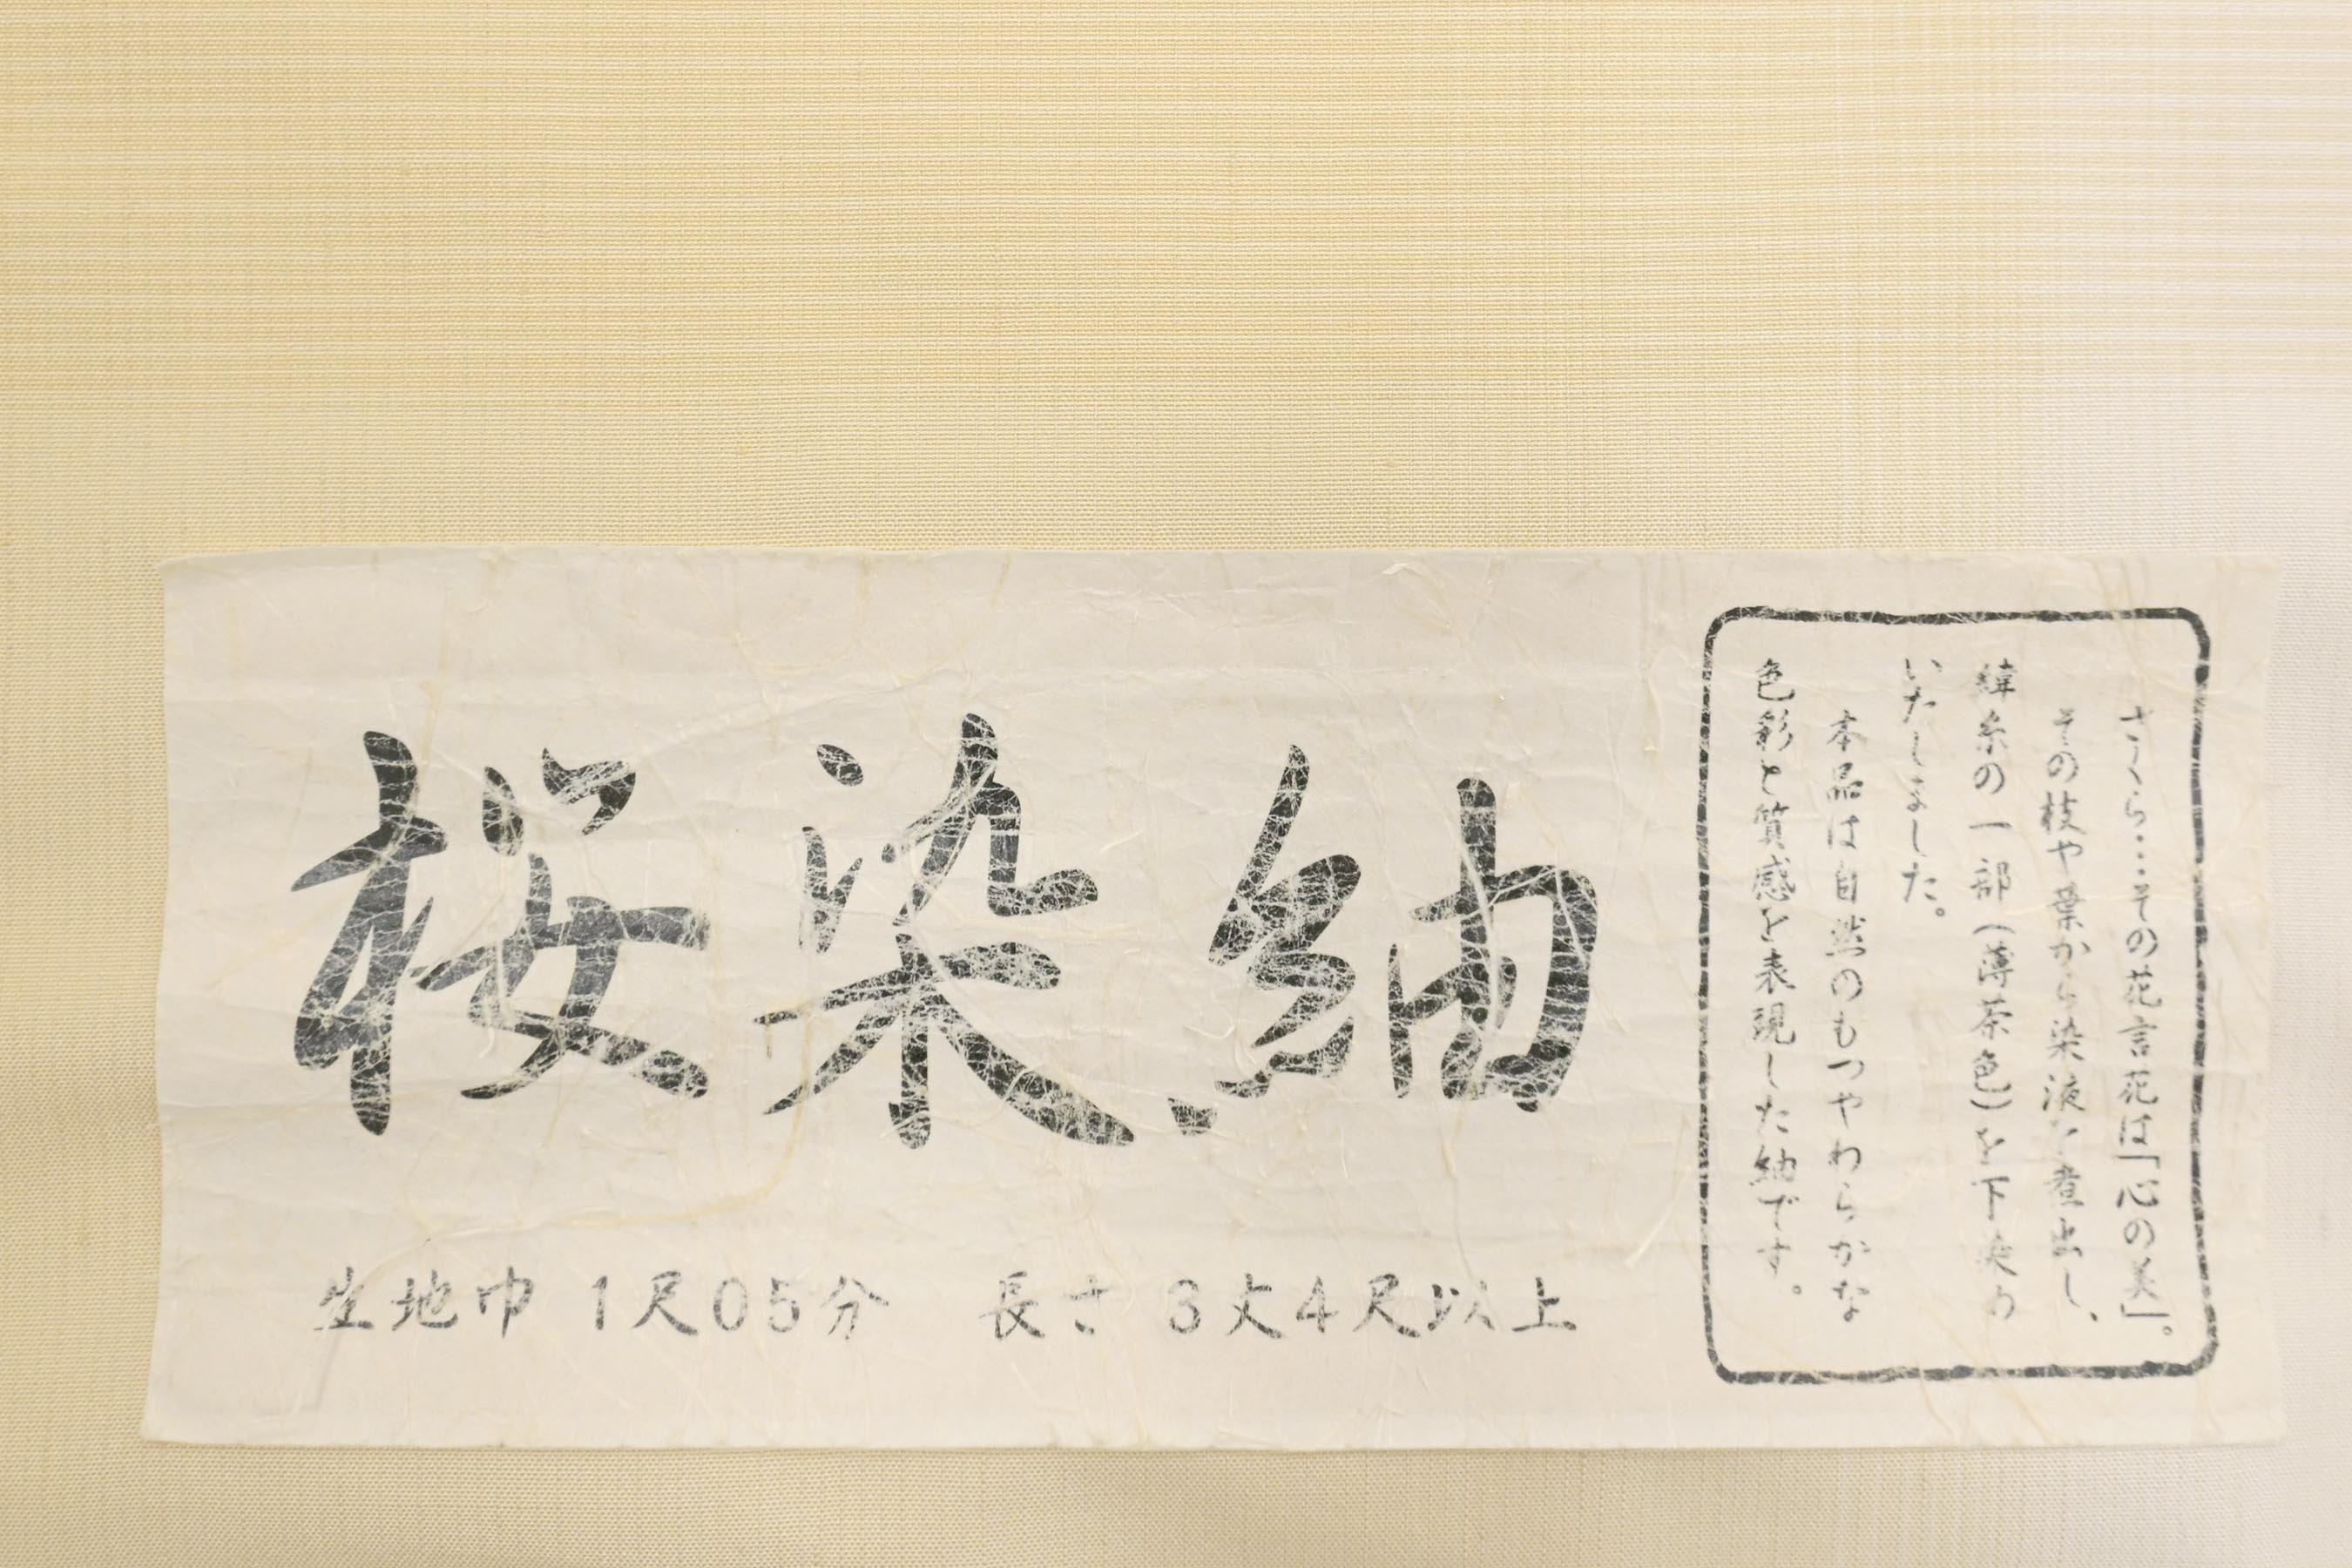 桜染紬
生地巾 1尺05分　長さ 3丈4尺以上
さくら…その花言花は「心の美」。
その枝や葉から染液を煮出し、
緯糸の一部(薄茶色)を下染め
いたしました。
本品は自然のもつやわらかな
色彩と質感を表現した紬です。